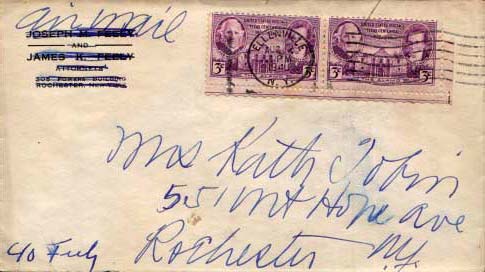 air mail
JOSEPH M FEELY
AND
JAMES K. FEELY
ATTORNEYS
POWERS BUILDING
ROCHESTER, NEW YORK
UNITED STATES POSTAGE
TEXAS CENTENNIAL
3¢
3¢
UNITED STATES POSTAGE
TEXAS CENTENNIAL
3¢
3¢
ELLENVILLE
N.Y.
Mrs Kath Tobin
551 Mt Hope Ave
Rochester N.Y.
c/o Feely